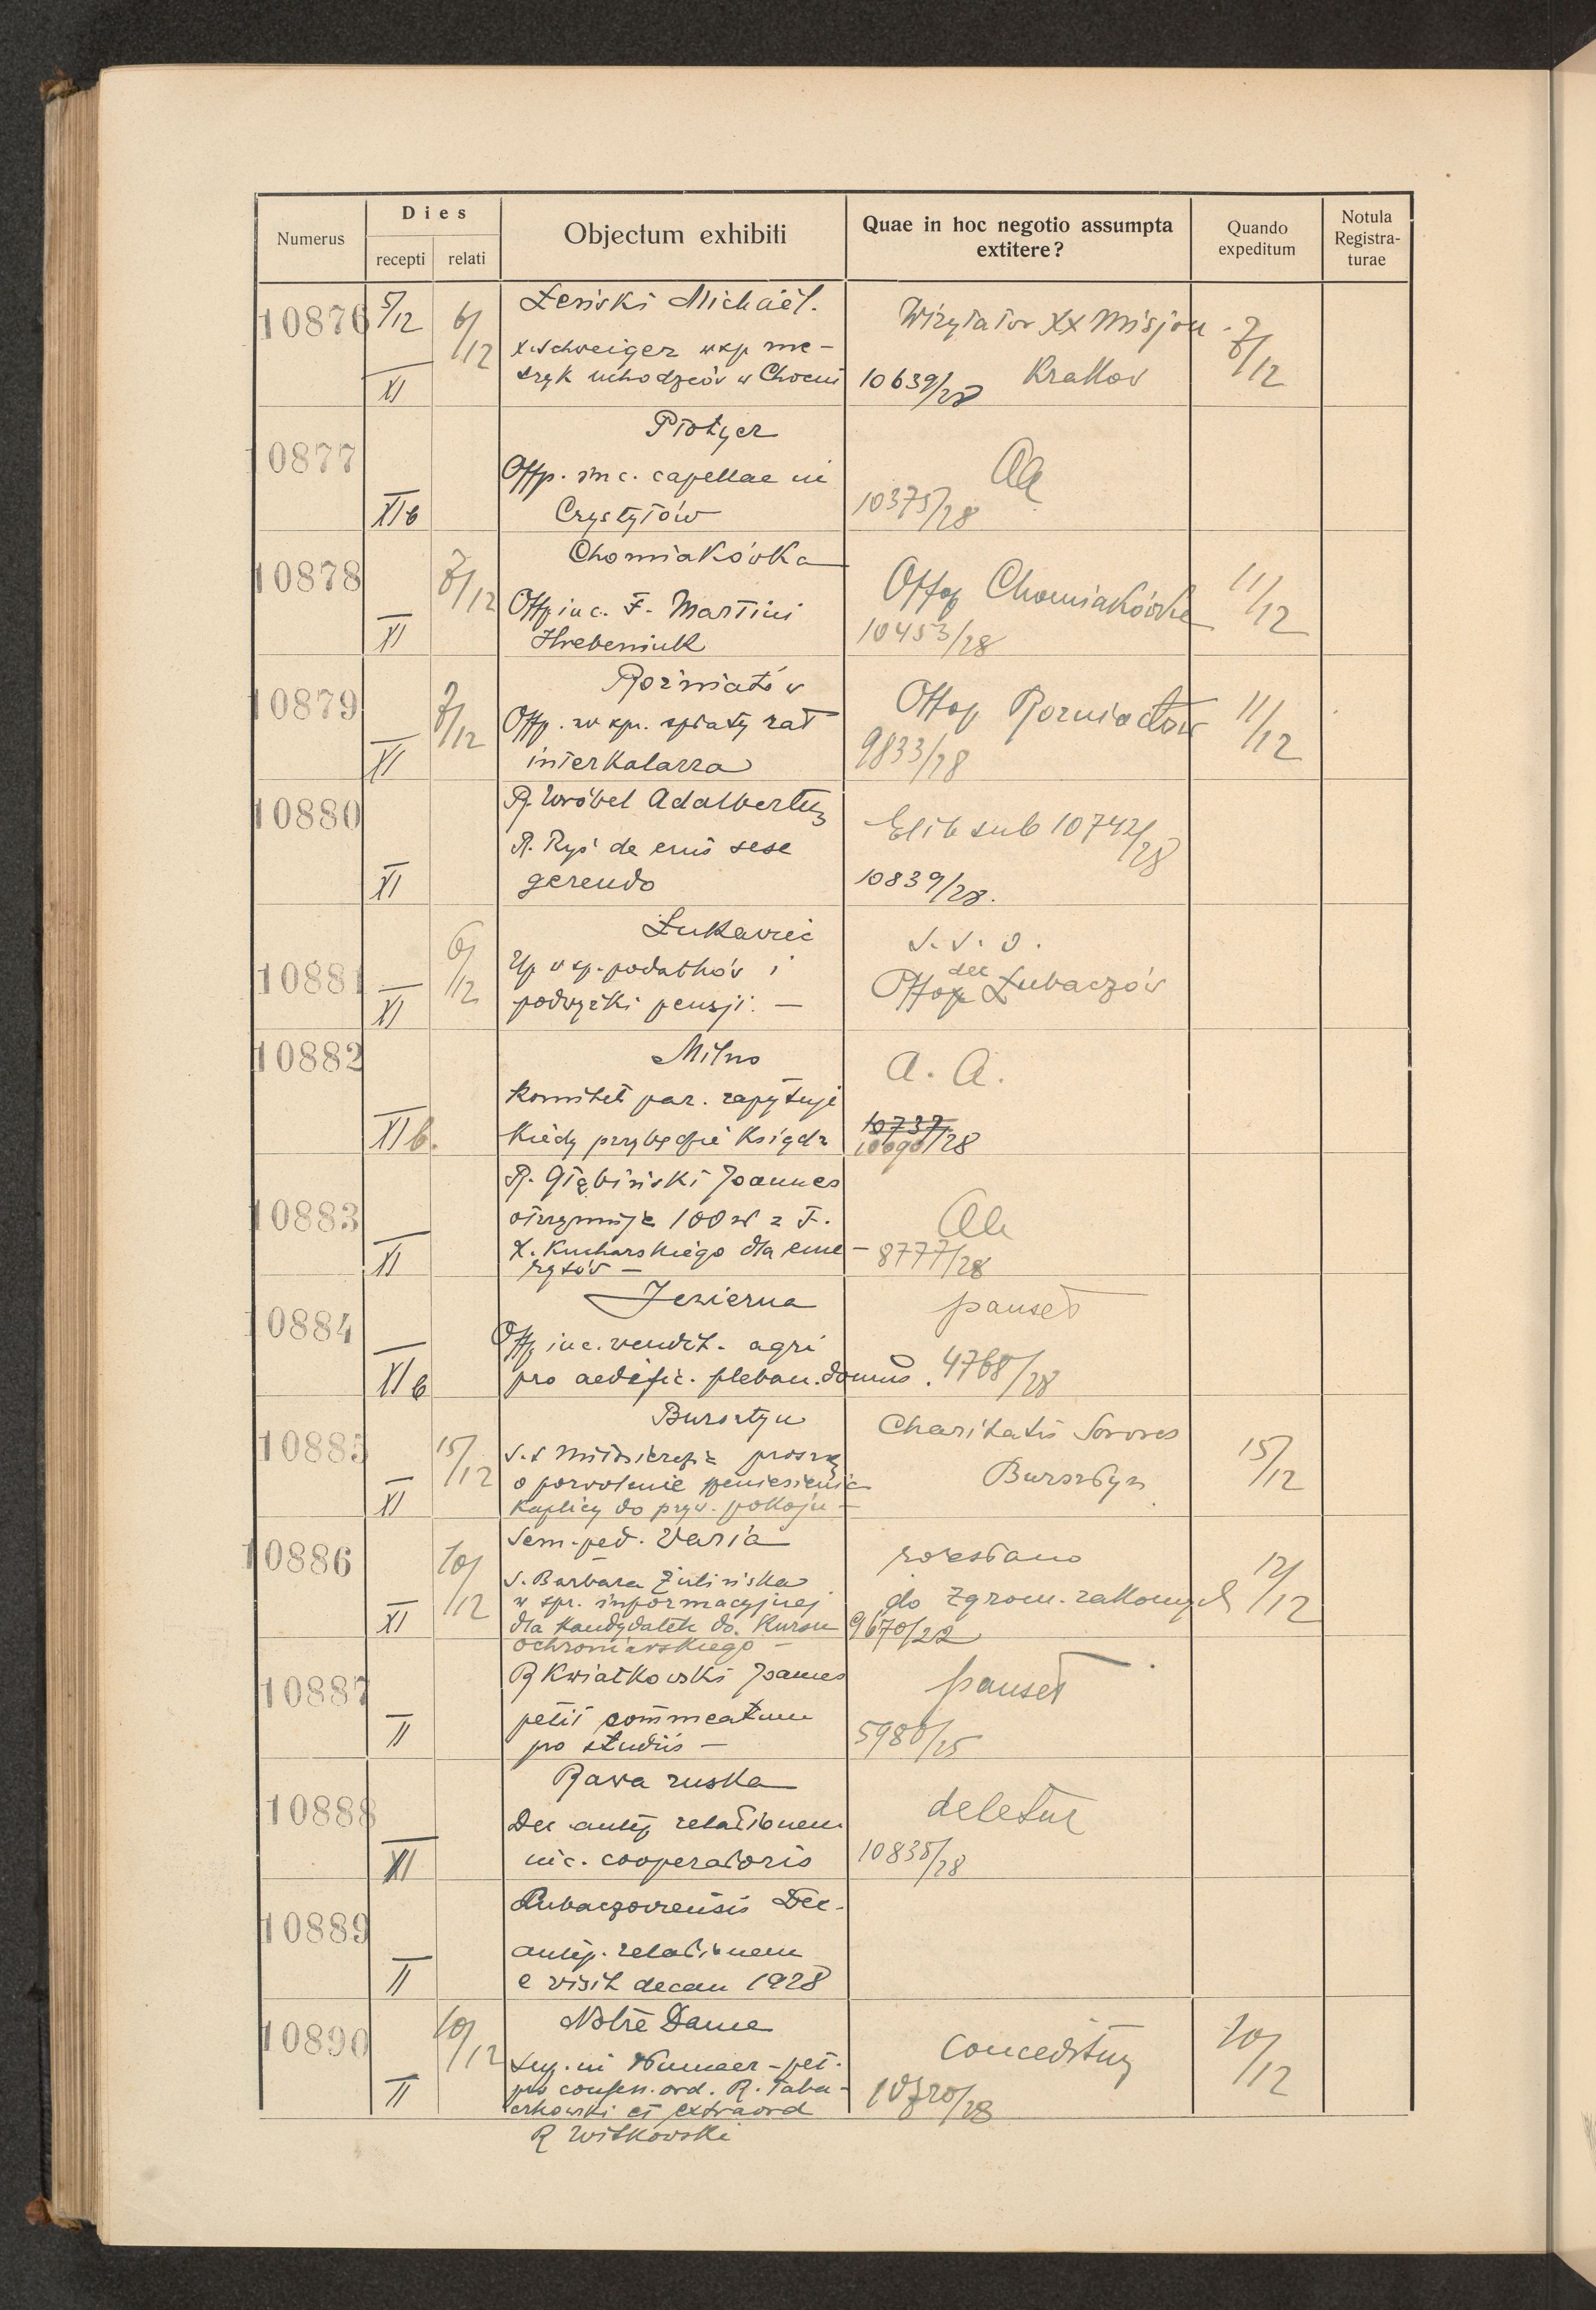 Numerus
Dies
recepti
relati
Objectum exhibiti
Quae in hoc negotio assumpta
extitere?
Quando
expeditum
Notula
Registra-
turae
10876
5/12
6/12
XI
Leński Michaël.
X. Schweiger w sp. me-
tryk uchodzców w Choceni
Wizytator XX Misjon.
Kraków
10639/28
7/12
10877
XIb
Płotycz
Offp. inc. capellae in
Czystyłów
Aa
10375/28
10878
7/12
XI
Chomiakówka
Offp inc. F. Martini
Hrebeniuk
Offop Chomiakówka
10453/28
11/12
10879
7/12
XI
Rożniatów
Offp. w spr. spłaty rat
interkalarza
Offop Rozniatów
9833/28
11/12
10880
XI
R. Wróbel Adalbertus
R. Ryś de eius sese
gerendo
Elib sub 10742/28
10839/28.
10881
6/12
XI
Łukawiec
Up w sp. podatków i
podwyżki pensji. —
s. v. o.
dec
Offop Lubaczów
10882
XIb.
Milno
Komitet par. zapytuje
kiedy przybędzie Ksiądz
A. A.
10737
/28
10883
XI
R. Głąbiński Joannes
otrzymuje 100 zł z F.
X. Kucharskiego dla eme-
rytów —
Aa
8777/28
10884
XIb
Jezierna
Offp inc. vendit. agri
pro aedific. pleban. domus.
pauset
4768/28
10885
15/12
XI
Bursztyn
S.S Miłosierdzia proszą
o pozwolenie przeniesienia
kaplicy do pryw. pokoju —
Charitatis Sorores
Bursztyn
15/12
10886
10/12
XI
Sem. ped. Varia
S. Barbara Żulińska
w spr. informacyjnej
dla kandydatek do Kursu
ochroniarskiego —
rozesłano
do zgrom. zakonnych
9670/22
12/12
10887
II
R Kwiatkowski Joannes
petit commeatum
pro studiis —
pauset
5980/25
10888
XI
Rawa ruska
Dec. relationem
inc. cooperatoris
deletur
10835/28
10889
II
Lubaczoviensis Dec.
relationem
e visit decan 1928
10890
10/12
II
Notre Dame
- pet.
pro confess. ord. R. Taba-
czkowski et extraord
R Witkowski
conceditur
10720/28
10/12